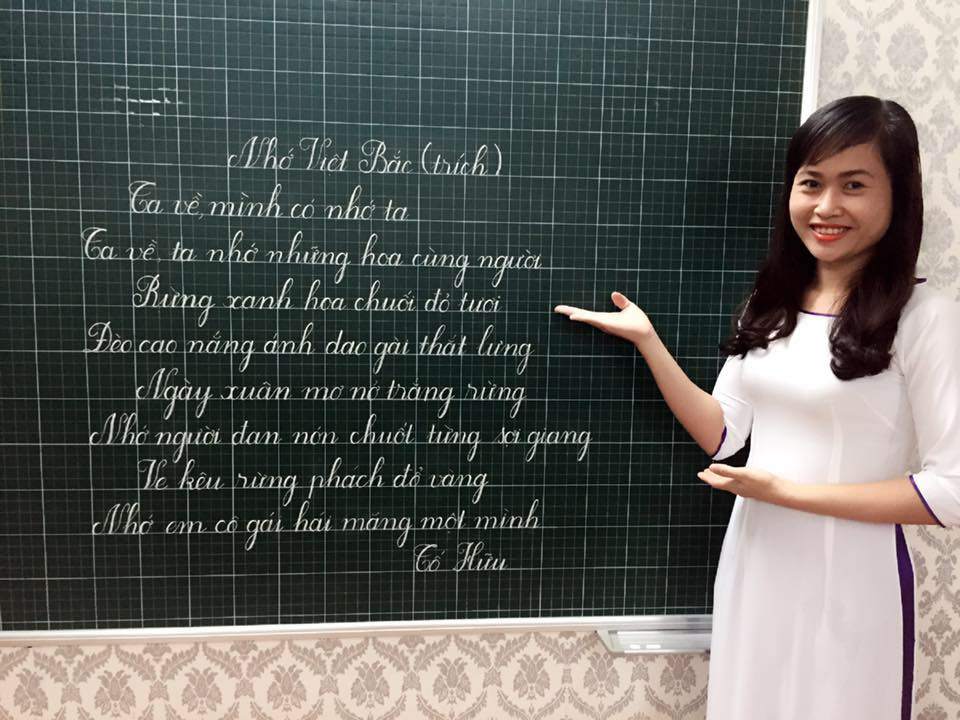 Nhớ Việt Bắc (trích)
Ta về, mình có nhớ ta
Ta về, ta nhớ những hoa cùng người
Rừng xanh hoa chuối đỏ tươi
Đèo cao nắng ánh dao gài thắt lưng
Ngày xuân mơ nở trắng rừng
Nhớ người đan nón chuốt từng sợi giang
Ve kêu rừng phách đổ vàng
Nhớ em cô gái hái măng một mình
Tố Hữu